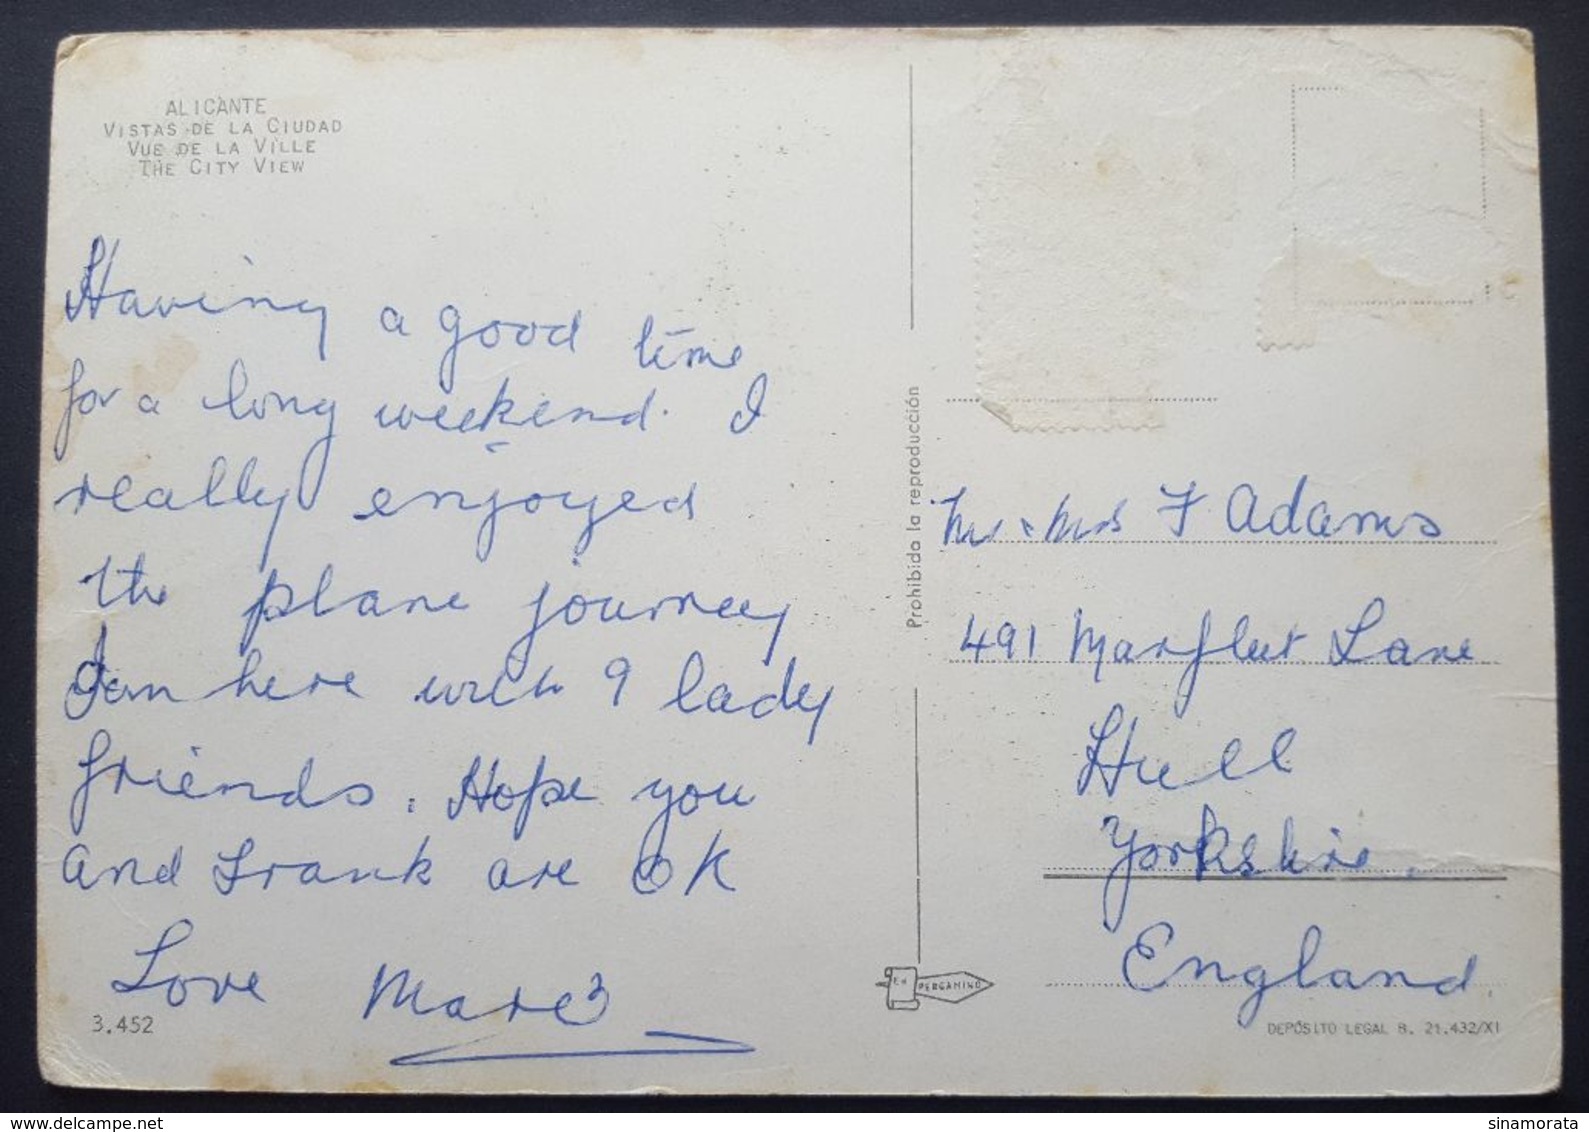 ALICANTE
VISTAS DE LA CIUDAD
VUE DE LA VILLE
THE CITY VIEW
Having a good time
for a long weekend. I
really enjoyed
the plane journey
I am here with 9 lady
friends. Hope you
and Frank are OK
Love
3.452
Prohibida la reproducción
Mr & Mrs F Adams
491 Marfleet Lane
Hull
Yorkshire.
England.
PERGAMINO
DEPÓSITO LEGAL B. 21.432/XI
delcampe.net
sinamorata